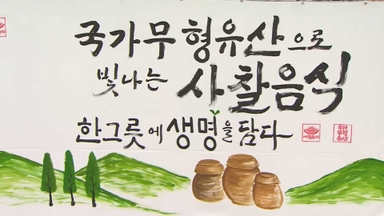 국가무형유산으로
빛나는 사찰음식
한그릇에 생명을 담다